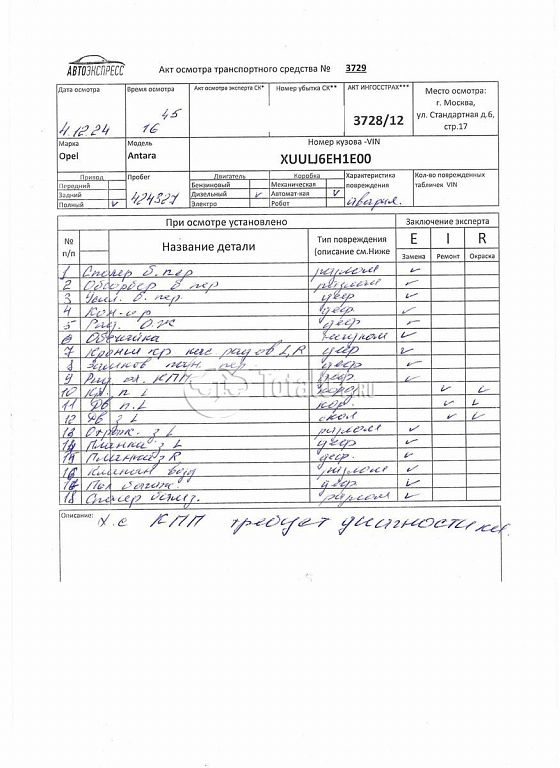 АВТОЭКСПРЕСС
Акт осмотра транспортного средства № 3729
Дата осмотра
Время осмотра
Акт осмотра эксперта СК*
Номер убытка СК**
АКТ ИНГОССТРАХ***
Место осмотра:
г. Москва,
ул. Стандартная д.6,
стр.17
4.12.24
16 45
3728/12
Марка
Opel
Модель
Antara
Номер кузова -VIN
XUULJ6EH1E00
Привод
Передний
Задний
Полный v
Пробег
424327
Двигатель
Бензиновый
Дизельный v
Электро
Коробка
Механическая
Автомат-кая v
Робот
Характеристика
повреждения
Авария.
Кол-во поврежденных
табличек VIN
При осмотре установлено
Заключение эксперта
№
п/п
Название детали
Тип повреждения
(описание см.Ниже
E I R
Замена Ремонт Окраска
1 Спойлер б. пер разлом v
2 Абсорбер б пер разлом v
3 Усил. б. пер. деф v
4 Кон-ор деф. v
5 Рад. О.Ж деф v
6 Обечайка v
7 Кроншт кр рад ов L,R деф v
8 пер деф v
9 Рад ох. КПП деф. v
Total .ru
10 Кр. п L v v
11 Дв п. L кор. v v
12 Дв з L скол v v
13 з L разлом v
14 Планка з L деф v
15 Планка з R деф. v
16 разлом v
17 Пол багаж. деф v
18 Спойлер разлом v
Описание:
х.с КПП требует диагностики